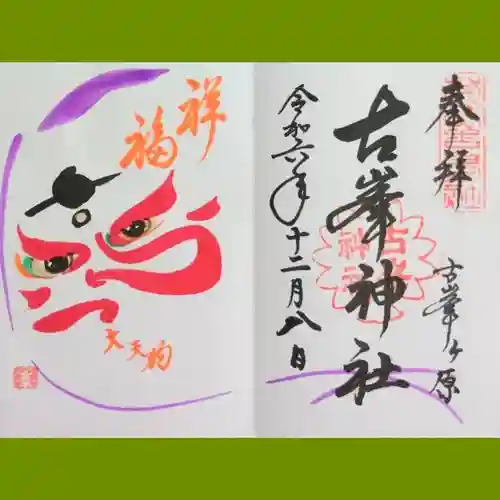 奉拝
古峯ヶ原
古峯神社
令和六年十二月八日
祥福
大天狗